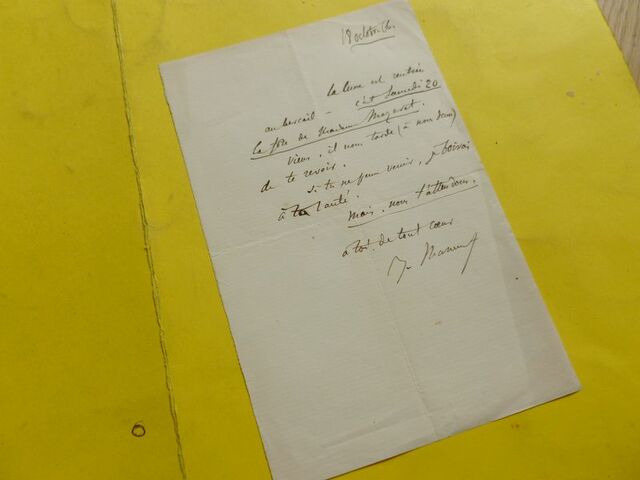 18 octobre 66.
la lune est rentrée
au bercail – c'est Samedi 20
la fête de Madame
viens, il nous tarde (à nous deux)
de te revoir.
si tu ne peux venir, je boirai
à ta santé.
mais nous t'attendons.
à toi de tout cœur